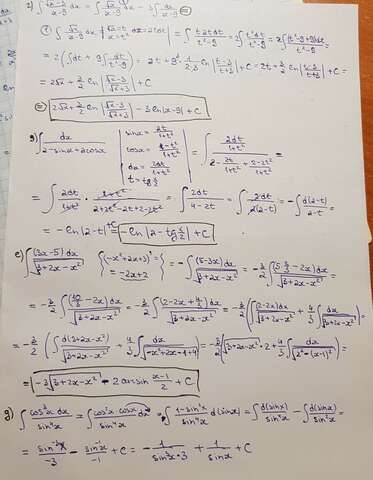 г) ∫ (√x-3)/(x-9) dx = ∫ √x/(x-9) dx - 3∫ dx/(x-9) =
① ∫ √x/(x-9) dx | √x=t dx=2tdt | = ∫ t·2tdt/(t²-9) = 2∫ t²dt/(t²-9) = 2∫ (t²-9+9)dt/(t²-9) =
= 2(∫dt + 9∫ dt/(t²-9)) = 2t + 9·2· 1/(2·3) ln|(t-3)/(t+3)| + C = 2t + ln|(t-3)/(t+3)| + C =
= 2√x + ln|(√x-3)/(√x+3)| + C
= 2√x + ln|(√x-3)/(√x+3)| - 3ln|x-9| + C
g) ∫ dx/(2-sinx+2cosx) | sinx = 2t/(1+t²) cosx = (1-t²)/(1+t²) dx = 2dt/(1+t²) t = tg x/2 | = ∫ (2dt/(1+t²))/(2 - 2t/(1+t²) + (2-2t²)/(1+t²)) =
= ∫ 2dt/(1+t²) · (1+t²)/(2+2t²-2t+2-2t²) = ∫ 2dt/(4-2t) = ∫ 2dt/(2(2-t)) = -∫ d(2-t)/(2-t) =
= -ln|2-t| + C = -ln|2-tg x/2| + C
e) ∫ (3x-5)dx/√(3+2x-x²) = {(-x²+2x+3)' = -2x+2} = -∫ (5-3x)dx/√(3+2x-x²) = -3/2 ∫ (-2x)dx/√(3+2x-x²) =
= -3/2 ∫ (10/3-2x)dx/√(3+2x-x²) = -3/2 ∫ (2-2x+4/3)dx/√(3+2x-x²) = -3/2 (∫ (2-2x)dx/√(3+2x-x²) + 4/3 ∫ dx/√(3+2x-x²)) =
= -3/2 (∫ d(3+2x-x²)/√(3+2x-x²) + 4/3 ∫ dx/√(-x²+2x-1+4)) = -3/2 (√(3+2x-x²)·2 + 4/3 ∫ dx/√(2²-(x-1)²)) =
= -3√(3+2x-x²) - 2arcsin (x-1)/2 + C
g) ∫ cos³x dx/sin⁴x = ∫ cos²x·cosx dx/sin⁴x = ∫ (1-sin²x)/sin⁴x d(sinx) = ∫ d(sinx)/sin⁴x - ∫ d(sinx)/sin²x =
= sin⁻³x/-3 - sin⁻¹x/-1 + C = -1/(sin³x·3) + 1/sinx + C